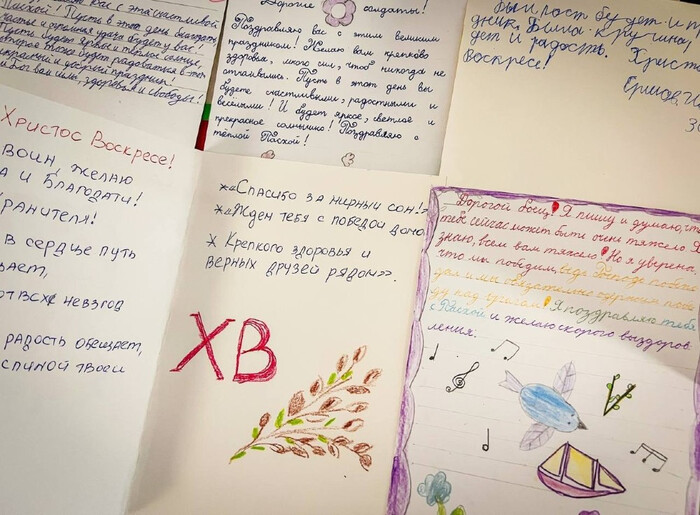 вас с этим счастливой
Пасхой! Пусть в этот день благодать,
счастье и огромная удача будет у вас!
Пусть будет яркое и тёплое солнце,
которое тоже будет радоваться в этот
прекрасный и добрый праздник!
Вам мы, здоровья и свободы!
Дорогие солдаты!
Поздравляю вас с этим великим
праздником! Желаю вам крепкого
здоровья, много сил, чтоб никогда не
сдавались. Пусть в этот день вы
будете счастливыми, радостными и
весёлыми! И будет яркое, светлое и
прекрасное солнышко! Поздравляю с
тёплой Пасхой!
был рост будет и пр
дник. Была кручина
дет и радость. Христо
Воскресе!
Ершов, И
Христос Воскресе!
воин, желаю
а и Благодати!
ранителя!
в сердце путь
ает,
от всх невзгод
радость обещает,
спиной твоей
*«Спасибо за мирный сон!»
*«Ждем тебя с победой домо
* Крепкого здоровья и
верных друзей рядом».
ХВ
Дорогой боец! Я пишу и думаю, что
тебе сейчас может быть очень тяжело. Я
знаю, всем вам тяжело! Но я уверена
что мы победим, ведь
мы обязательно
ду над! Я поздравляю тебя
с Пасхой и желаю скорого выздоров
ления.